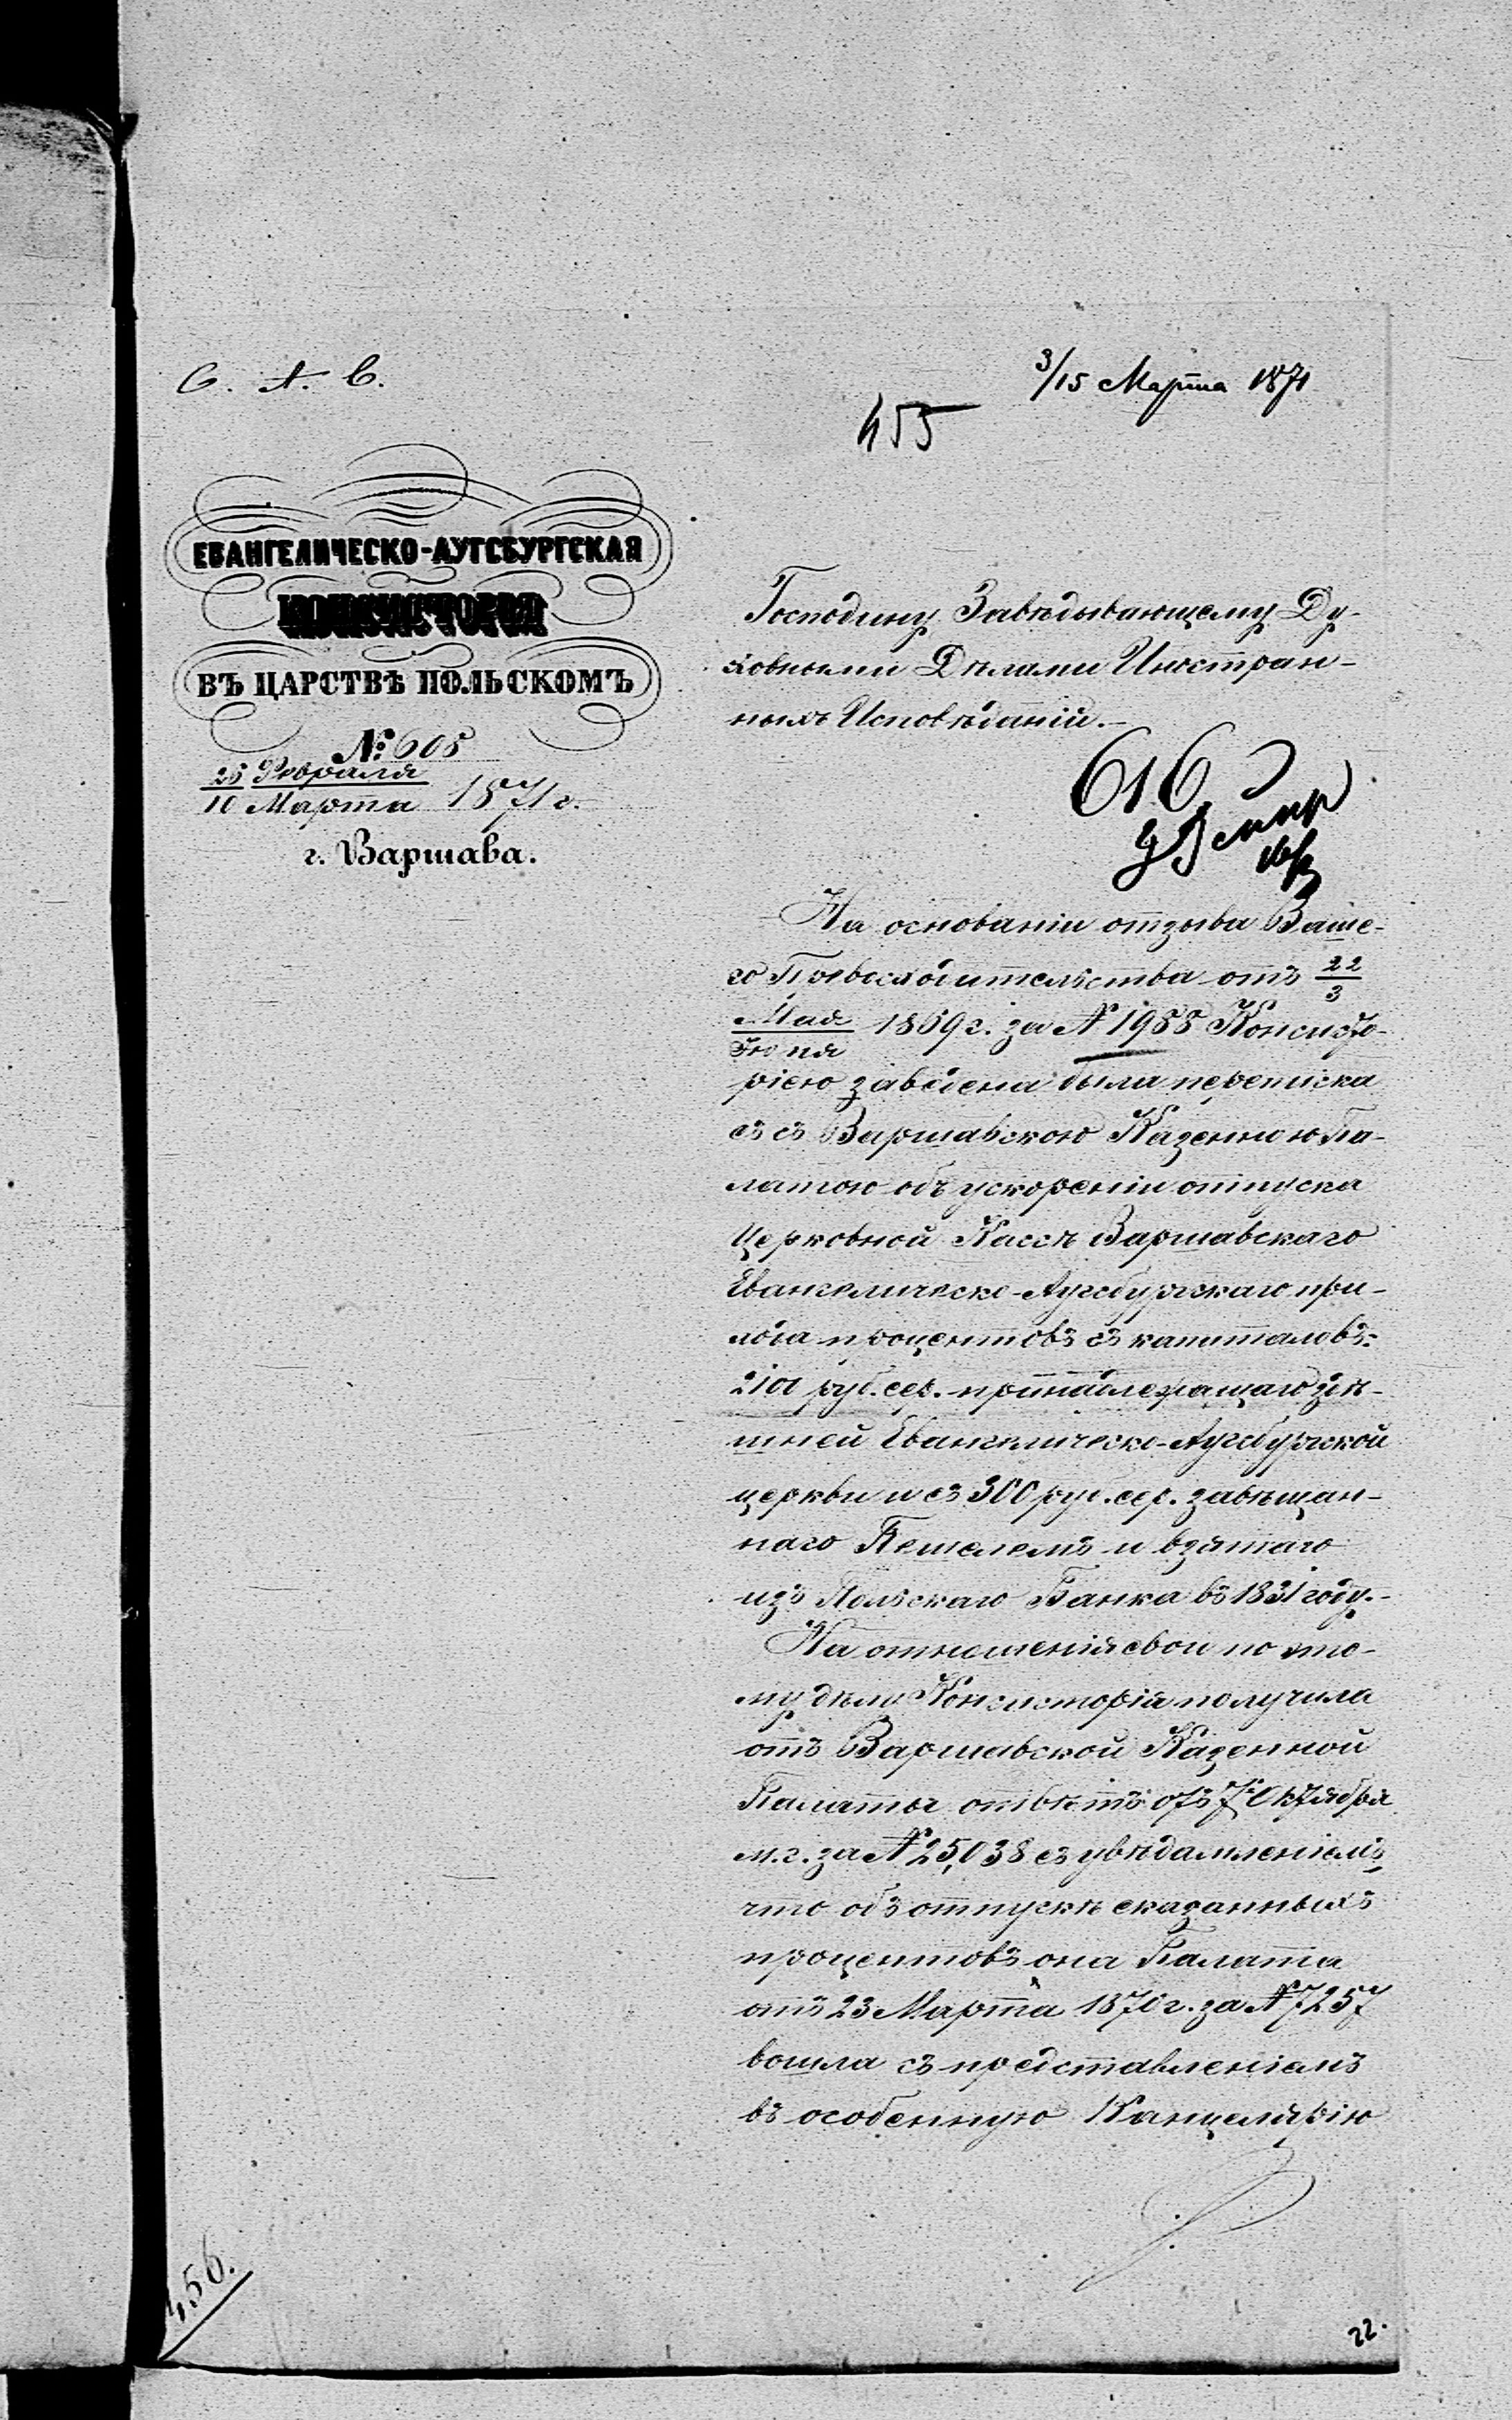 С. А. С.
3/15 Марта 1871
455
ЕВАНГЕЛИЧЕСКО-АУГСБУРГСКАЯ
КОНСИСТОРІЯ
ВЪ ЦАРСТВѢ ПОЛЬСКОМЪ
№ 605
26 Февраля
10 Марта 1871 г.
г. Варшава.
Господину Завѣдывающему Ду-
ховными Дѣлами Иностран-
ныхъ Исповѣданій.-
616
На основаніи отзыва Ваше-
го Превосходительства отъ 22/3
Мая/Іюня 1869 г. за № 1988 Консисто-
ріею заведена была переписка
съ съ Варшавскою Казенною Па-
латою объ ускореніи отпуска
Церковной Кассѣ Варшавскаго
Евангелическо-Аугсбургскаго при-
хода процентовъ съ капиталовъ:
2100 руб. сер. принадлежащаго здѣ-
шней Евангелическо-Аугсбургской
церкви и съ 300 руб. сер. завѣщан-
наго и взятаго
изъ Польскаго Банка въ 1831 году.-
На отношенія свои по это-
му дѣлу Консисторія получила
отъ Варшавской Казенной
Палаты отвѣтъ отъ 7 Октября
м. г. за № 25,038 съ увѣдомленіемъ
что объ отпускѣ сказанныхъ
процентовъ она Палата
отъ 23 Марта 1870 г. за № 7257
вошла съ представленіемъ
въ особенную Канцелярію
456.
22.